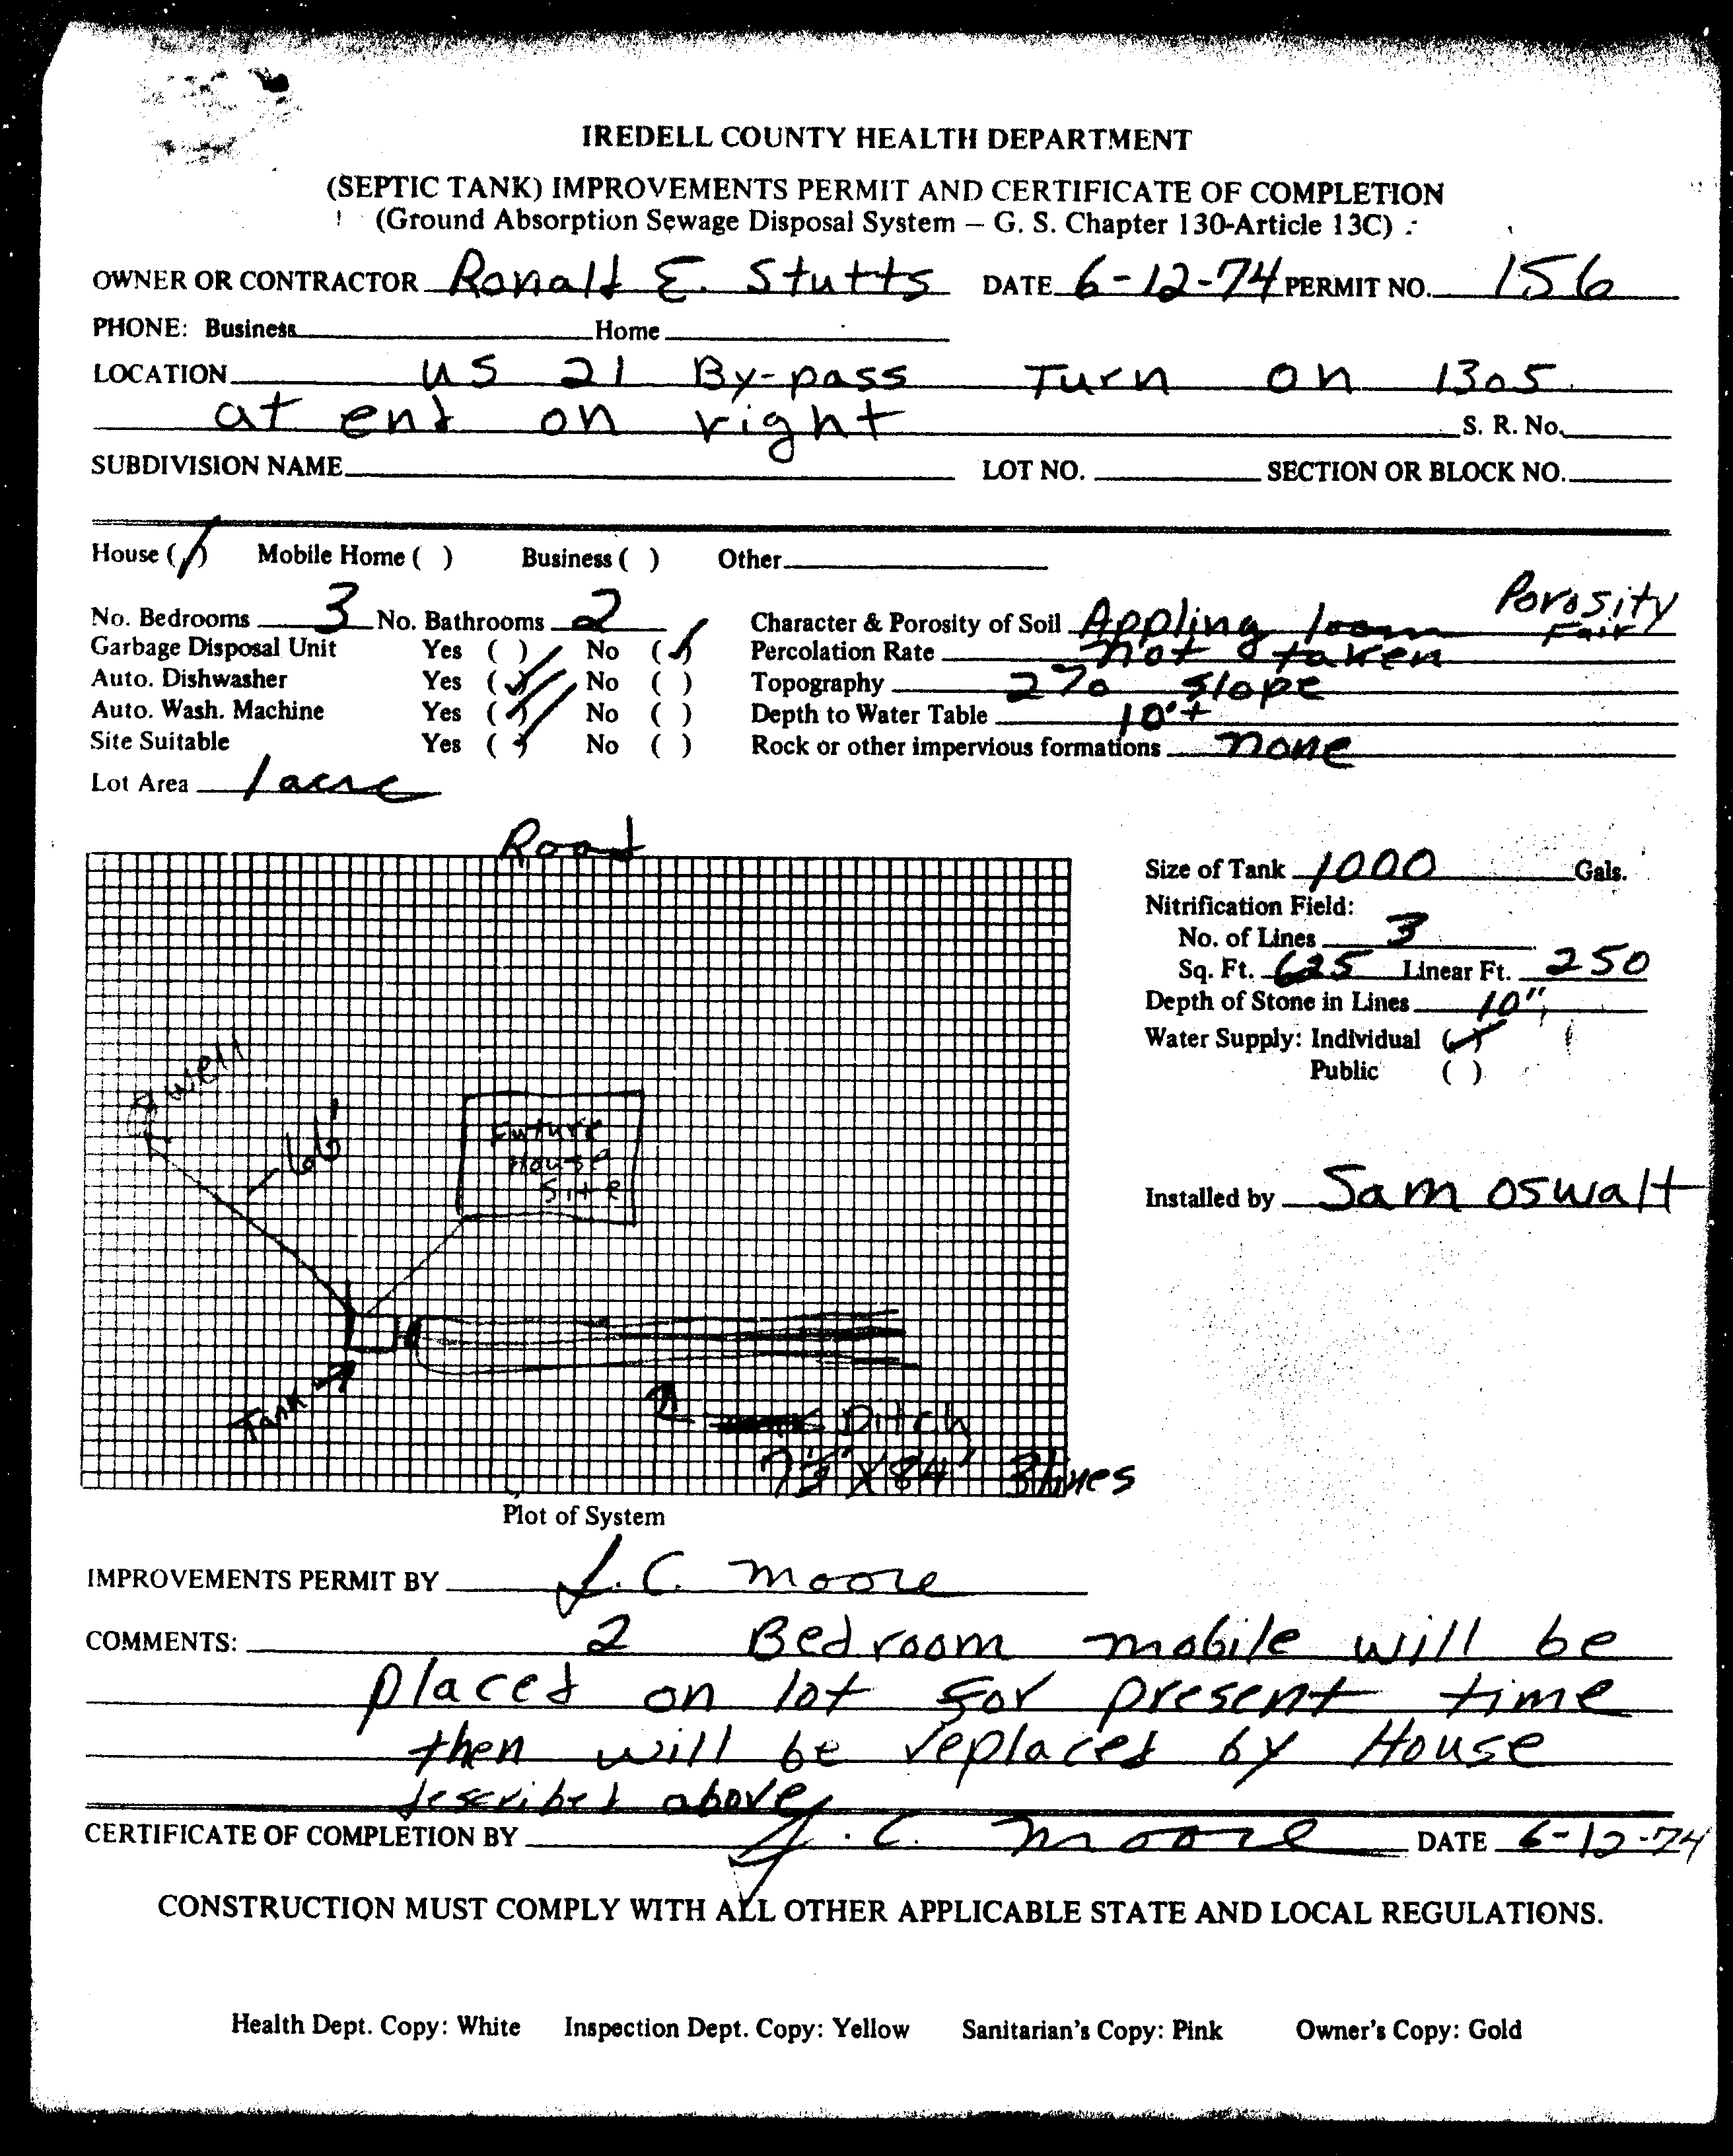 IREDELL COUNTY HEALTH DEPARTMENT
(SEPTIC TANK) IMPROVEMENTS PERMIT AND CERTIFICATE OF COMPLETION
(Ground Absorption Sewage Disposal System — G. S. Chapter 130-Article 13C)
OWNER OR CONTRACTOR Ronald E. Stutts DATE 6-12-74 PERMIT NO. 156
PHONE: Business Home
LOCATION US 21 By-pass Turn on 1305
at end on right S. R. No.
SUBDIVISION NAME LOT NO. SECTION OR BLOCK NO.
House (✓) Mobile Home ( ) Business ( ) Other
No. Bedrooms 3 No. Bathrooms 2 Character & Porosity of Soil Appling loam Porosity Fair
Garbage Disposal Unit Yes ( ) No (✓) Percolation Rate not taken
Auto. Dishwasher Yes (✓) No ( ) Topography 2% slope
Auto. Wash. Machine Yes (✓) No ( ) Depth to Water Table 10'+
Site Suitable Yes (✓) No ( ) Rock or other impervious formations none
Lot Area 1 acre
Road
Size of Tank 1000 Gals.
Nitrification Field:
No. of Lines 3
Sq. Ft. 625 Linear Ft. 250
Depth of Stone in Lines 10"
Water Supply: Individual (✓)
Public ( )
well
66'
Future
House
Site
Installed by Sam Oswalt
Tank
Ditch
X 84' 3 lines
Plot of System
IMPROVEMENTS PERMIT BY J. C. Moore
COMMENTS: 2 Bedroom mobile will be
placed on lot for present time
then will be replaced by House
described above
CERTIFICATE OF COMPLETION BY J. C. Moore DATE 6-12-74
CONSTRUCTION MUST COMPLY WITH ALL OTHER APPLICABLE STATE AND LOCAL REGULATIONS.
Health Dept. Copy: White Inspection Dept. Copy: Yellow Sanitarian's Copy: Pink Owner's Copy: Gold